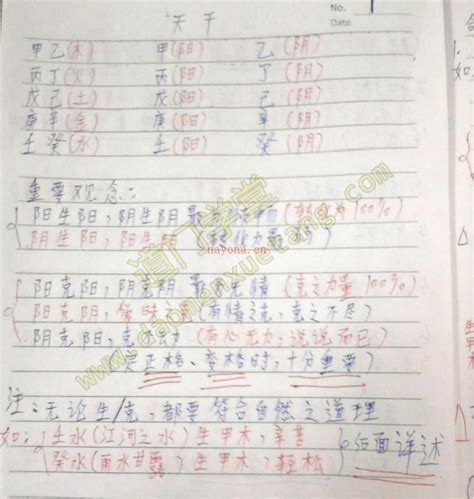 No. 1
Date
天干
甲乙(木) 甲(阳) 乙(阴)
丙丁(火) 丙(阳) 丁(阴)
戊己(土) 戊(阳) 己(阴)
庚辛(金) 庚(阳) 辛(阴)
壬癸(水) 壬(阳) 癸(阴)
重要观念:
阳生阳,阴生阴 最 100%)
阴生阳,阳生阴 (转化力最
nayona.cn
阳克阳,阴克阴 最 无情 (克之力量 100%)
阳克阴, (有情之克,克之不尽)
阴克阳,克 (有心无力,说说而已)
定正格、变格时,十分重要)
注:无论生/克,都要符合自然之道理
如:壬水(江河之水)生甲木,辛苦
癸水(雨水甘露)生甲木,轻松
后面详述
道门学堂
www.daomenxuetang.com
如